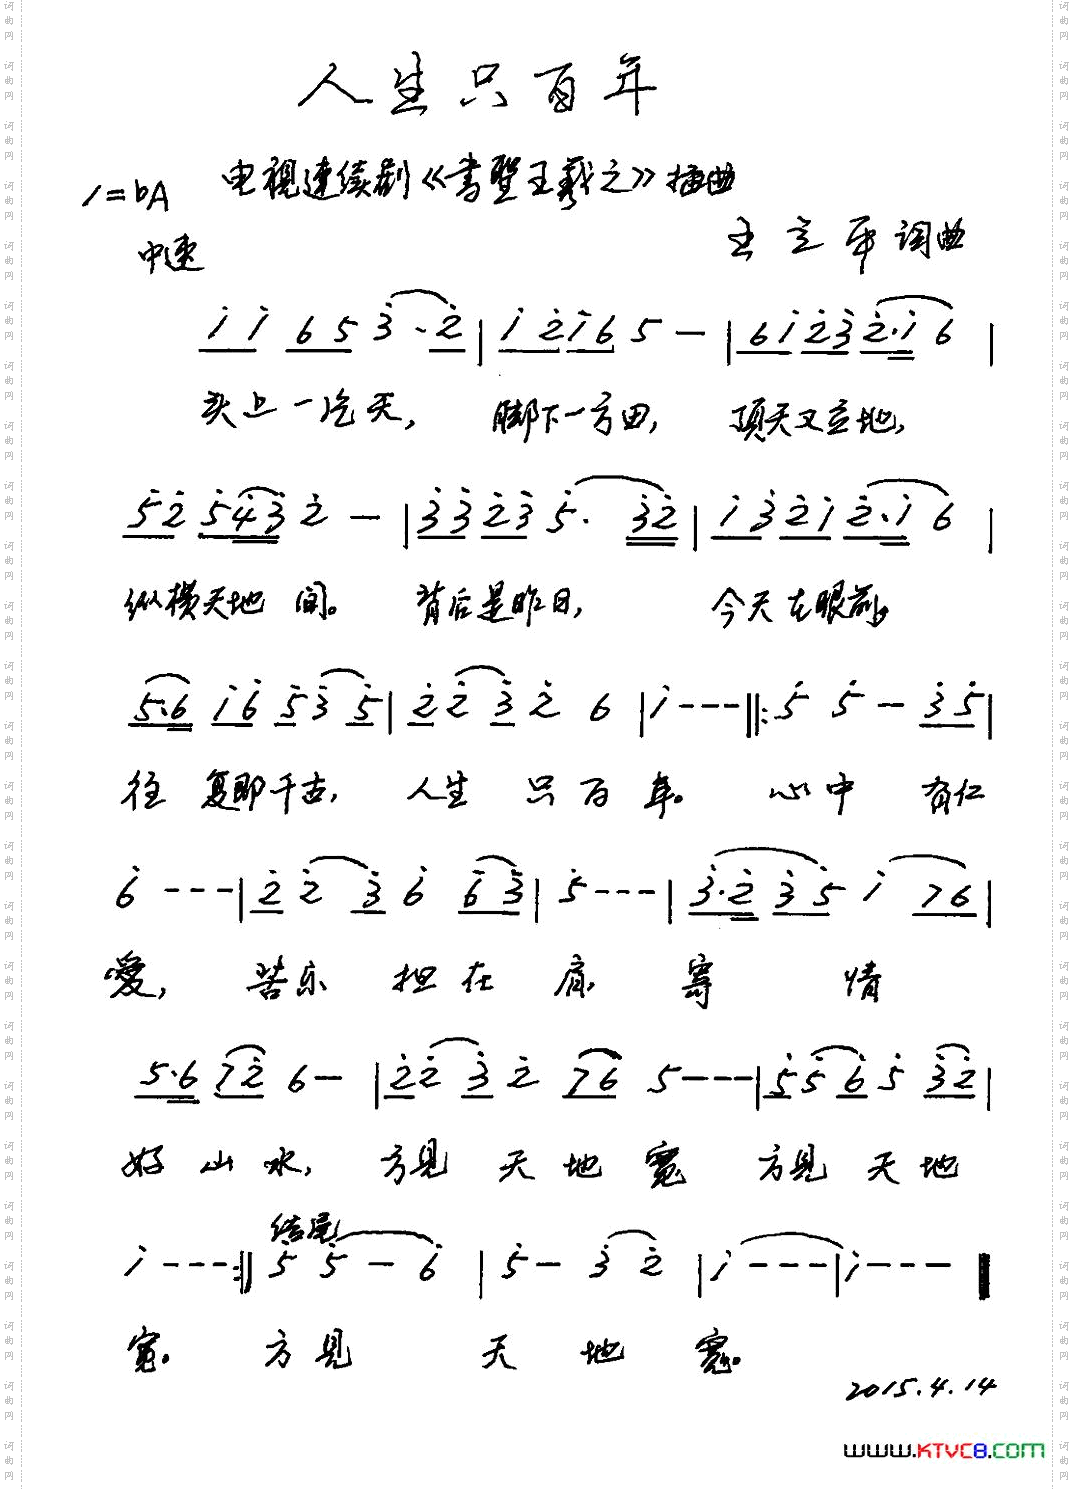 人生只百年
电视連续剧《書聖王羲之》插曲
1=bA
中速
王立平词曲
i i 6 5 3̇·2̇ | i 2̇ i 6 5 — | 6 i 2̇ 3̇ 2̇·i 6 |
头上一片天，脚下一方田，頂天又立地，
5̇ 2̇ 5̇ 4̇ 3̇ 2̇ — | 3̇ 3̇ 2̇ 3̇ 5̇· 3̇ 2̇ | i 3̇ 2̇ i 2̇·i 6 |
纵横天地间。背后是昨日，今天在眼前。
5̇·6̇ i 6̇ 5̇ 3̇ 5̇ | 2̇ 2̇ 3̇ 2̇ 6 | i - - - ‖: 5̇ 5̇ - 3̇ 5̇ |
往复即千古，人生只百年。心中有仁
6̇ - - - | 2̇ 2̇ 3̇ 6̇ 6̇ 3̇ | 5̇ - - - | 3̇·2̇ 3̇ 5̇ i 7 6 |
愛，苦乐担在肩，寄情
5·6 7 2̇ 6 — | 2̇ 2̇ 3̇ 2̇ 7 6 5 - - - | 5̇ 5̇ 6̇ 5̇ 3̇ 2̇ |
好山水，方見天地寬 方見天地
结尾
i - - - :‖ 5̇ 5̇ - 6̇ | 5̇ - 3̇ 2̇ | i - - - | i - - -
寬。方見天地寬。
2015.4.14
www.KTVC8.com
词曲网